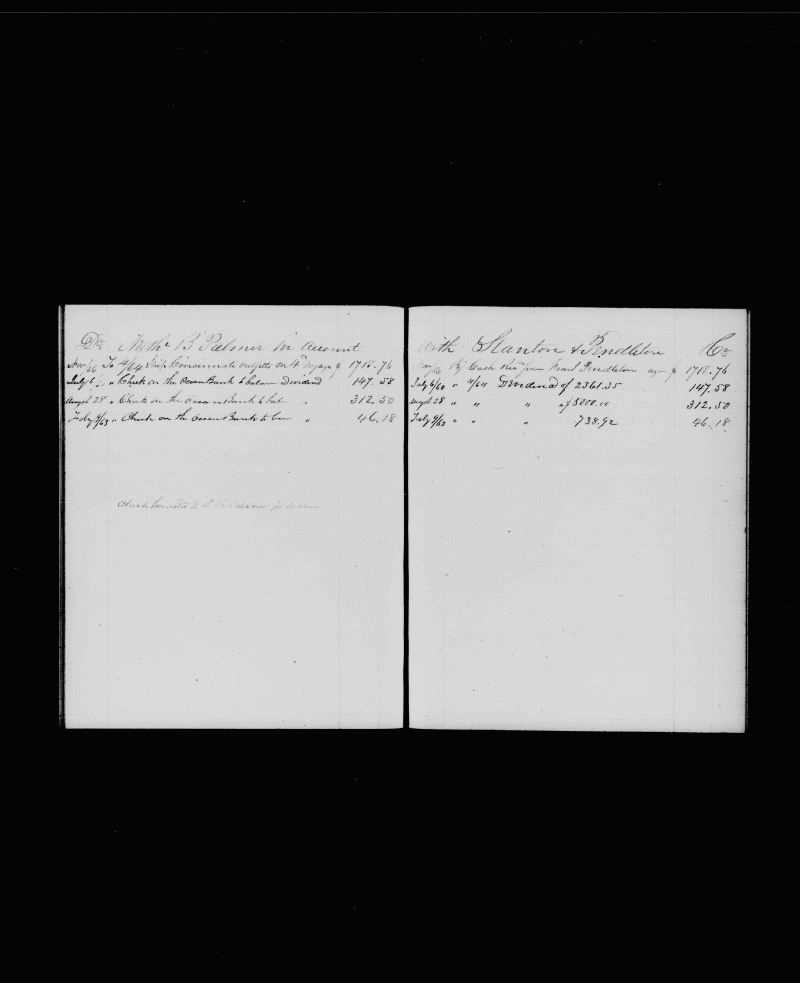 Dr. Nathl B Palmer in account
To 4/64 Ship outfitts on 4th voyage $ 1718.76
July 6/ " Check on the Ocean Bank to balance Dividend 147.58
Augst 28 " Check on the Ocean Bank to bal " 312.50
Feby /63 " Check on the Ocean Bank to " 46.18
Check to
with Stanton & Pendleton Cr.
By Cash from Pendleton $ 1718.76
July 6/60 " 4/64 Dividend of 2361.35 147.58
Augst 28 " " " of 5000.00 312.50
Feby /63 " " " 738.92 46.18